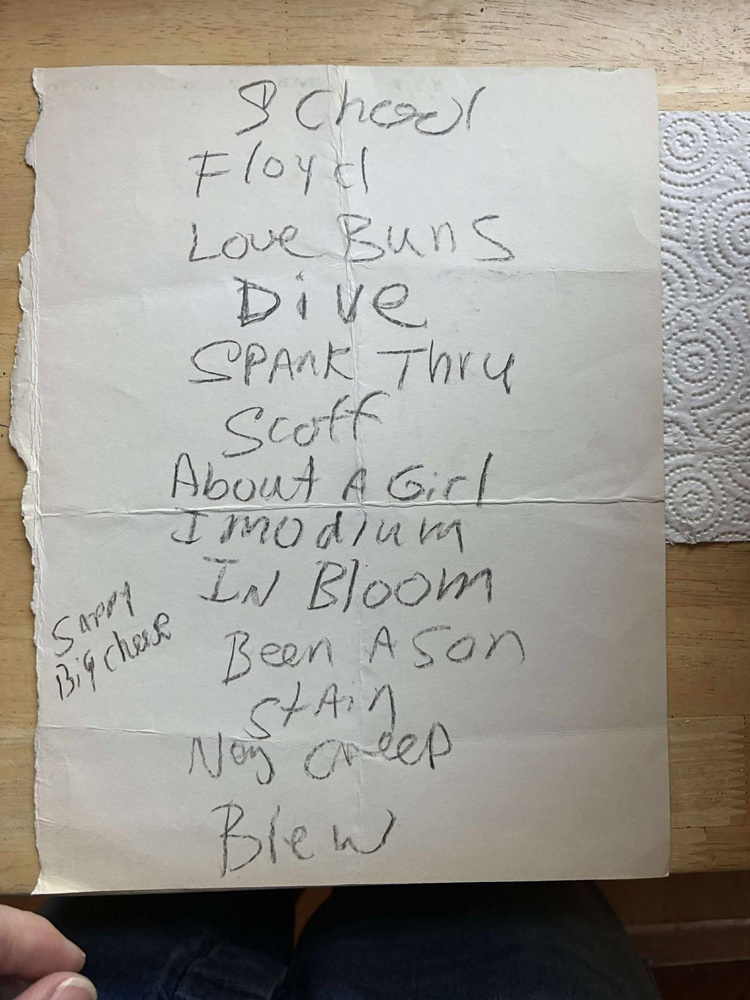 School
Floyd
Love Buns
Dive
Spank Thru
Scoff
About A Girl
Imodium
In Bloom
Sappy
Big cheese
Been A Son
Stain
Neg creep
Blew